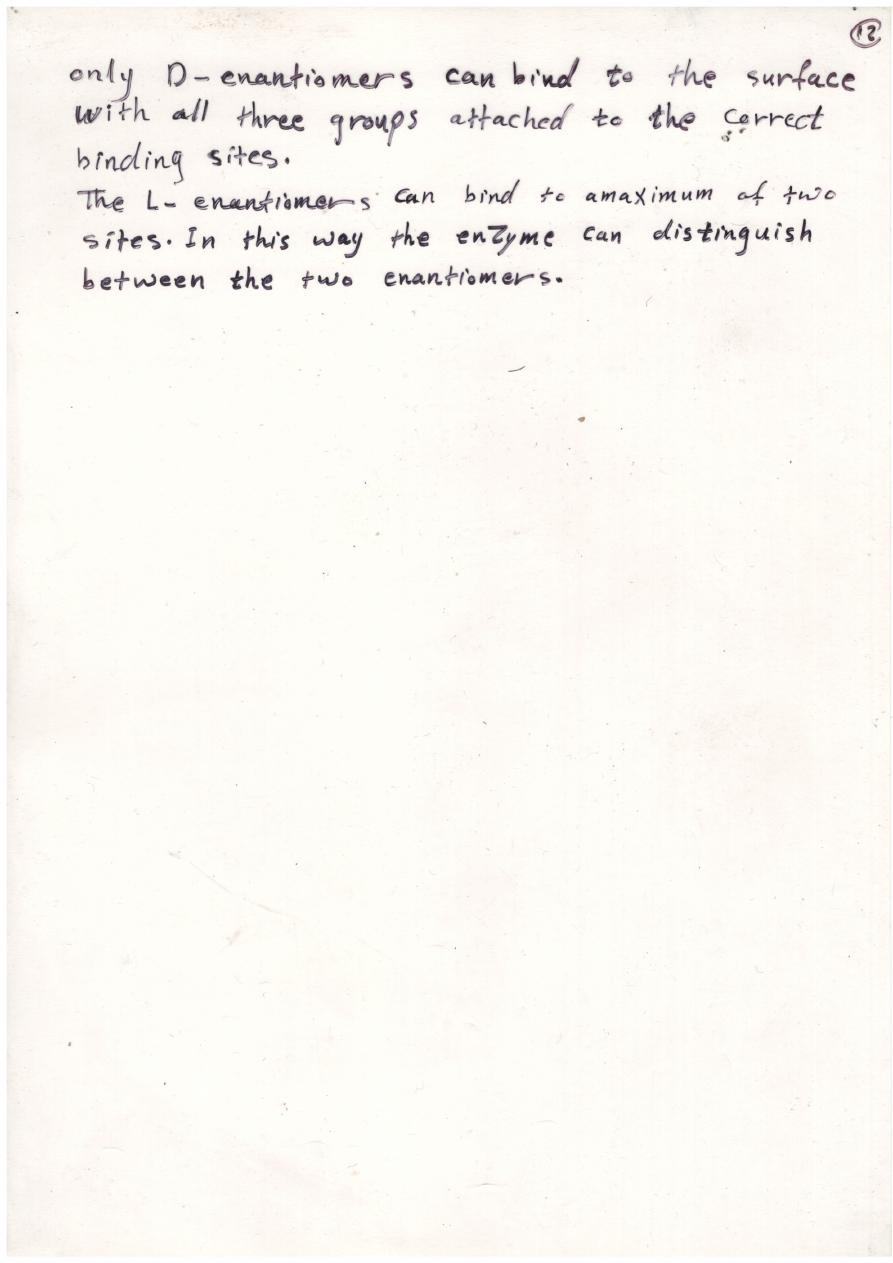 12
only D-enantiomers can bind to the surface
with all three groups attached to the correct
binding sites.
The L-enantiomers can bind to amaximum of two
sites. In this way the enzyme can distinguish
between the two enantiomers.